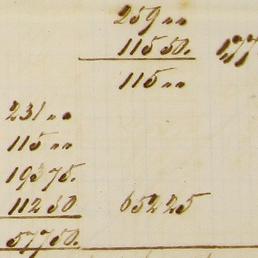 259 "
11550. 177
115 "
231 "
115 "
19375.
11250 65225
57750.